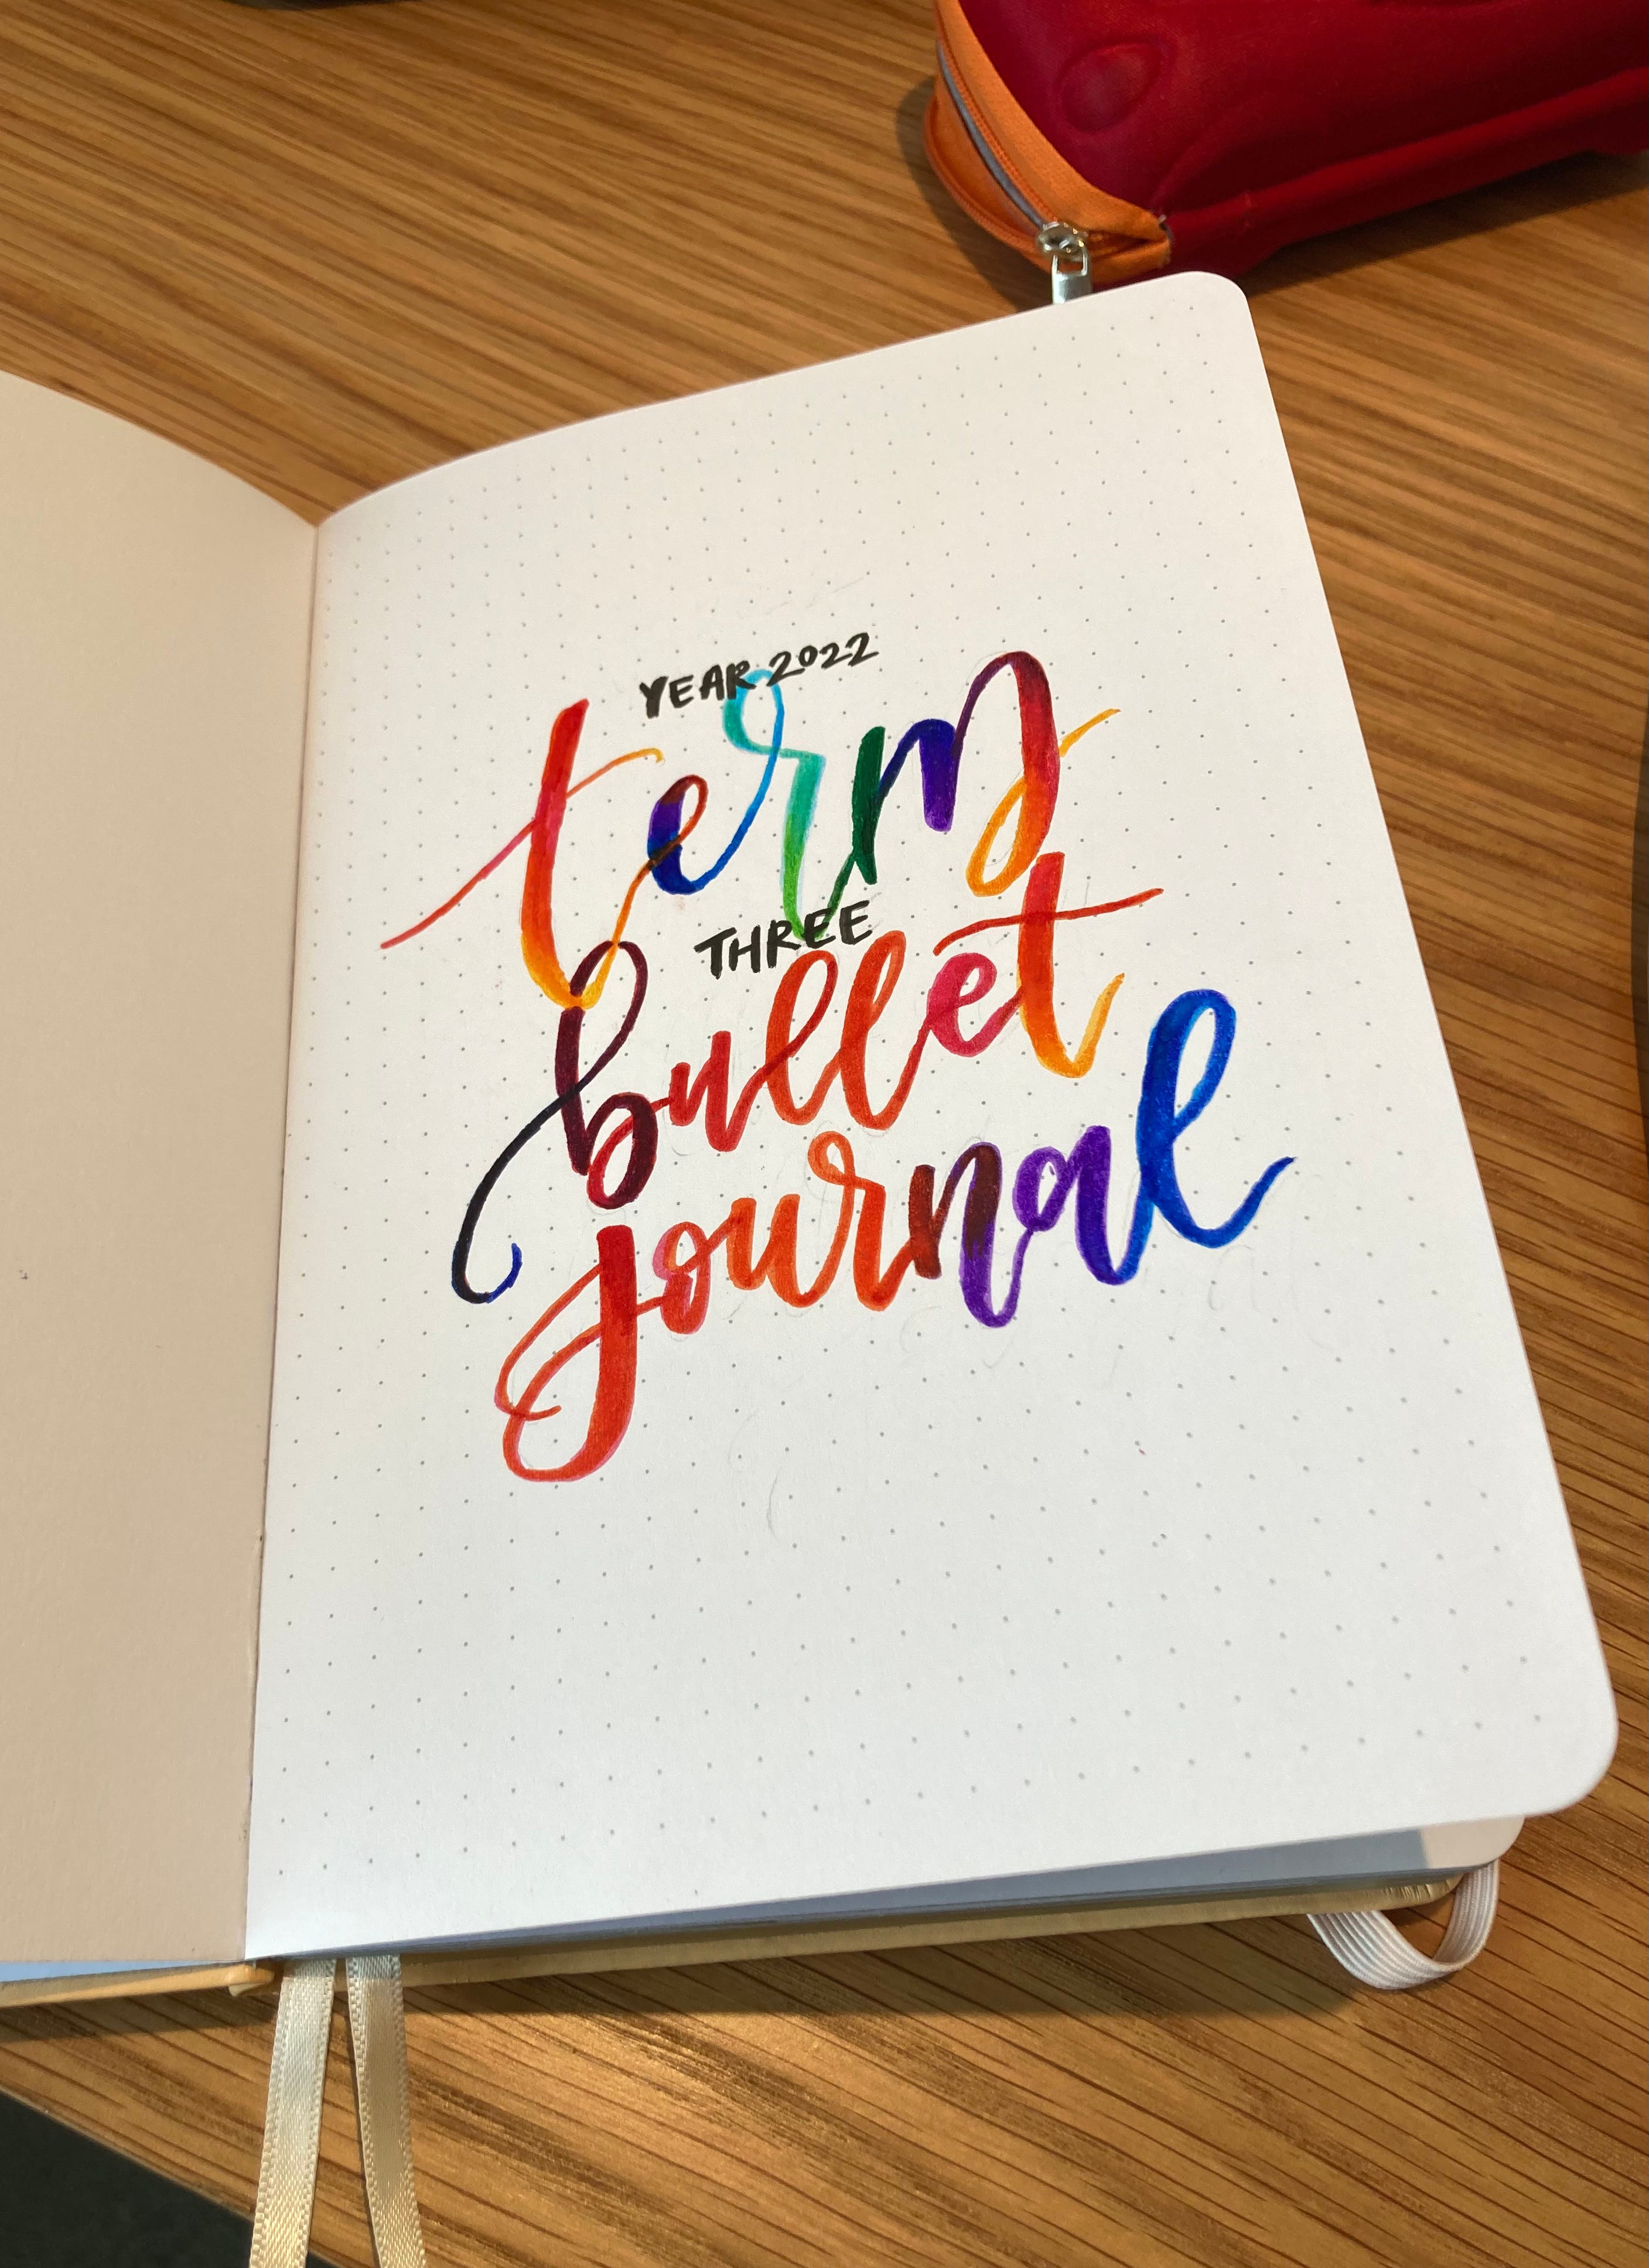 YEAR 2022
term
THREE
bullet
journal